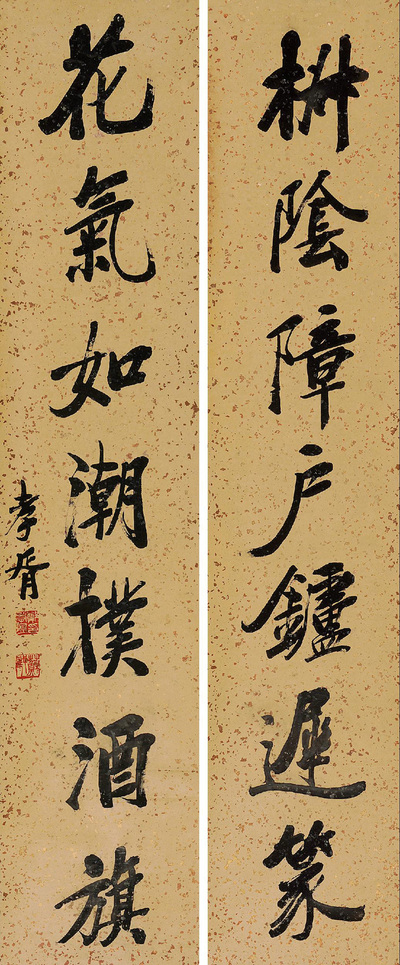 枏陰障户鑪遲篆
花氣如潮撲酒旗
孝胥